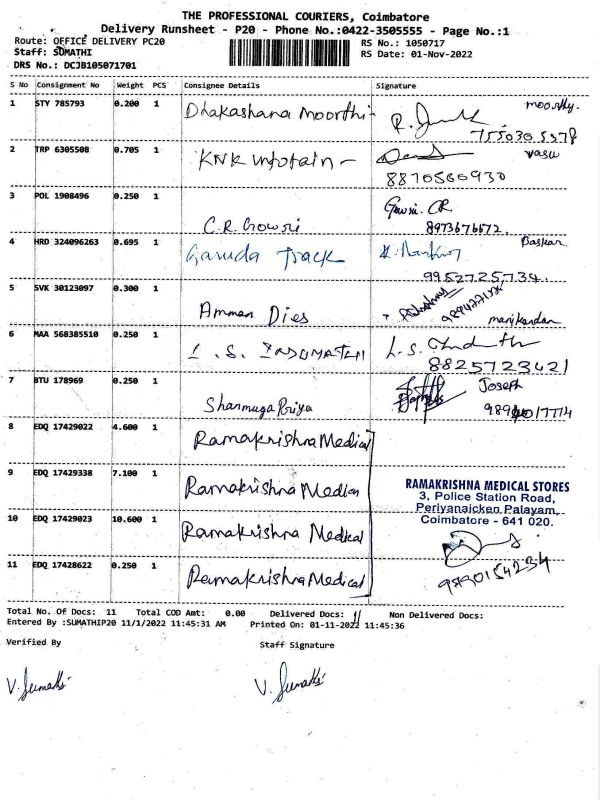 THE PROFESSIONAL COURIERS, Coimbatore
Delivery Runsheet - P20 - Phone No.:0422-3505555 - Page No.:1
Route: OFFICE DELIVERY PC20 RS No.: 1050717
Staff: SUMATHI RS Date: 01-Nov-2022
DRS No.: DCJB105071701
S No Consignment No Weight PCS Consignee Details Signature
1 STY 785793 0.200 1 Dhakashana Moorthi moorthy.
7550305378
2 TRP 6305508 0.705 1 KNK Infotain - vasu
8870560930
3 POL 1908496 0.250 1 C.R. Gowsri Gowsri. CR
8973676672.
4 HRD 324096263 0.695 1 Garuda Track Baskar
9952725734.
5 SVK 30123097 0.300 1 Amman Dies manikandan
6 MAA 568385510 0.250 1 L. S. INDUMATHI L. S.
8825723421
7 BTU 178969 0.250 1 Shanmuga Priya Joseph
8 EDQ 17429022 4.600 1 Ramakrishna Medical
9 EDQ 17429338 7.100 1 Ramakrishna Medical
10 EDQ 17429023 10.600 1 Ramakrishna Medical
11 EDQ 17428622 0.250 1 Ramakrishna Medical
RAMAKRISHNA MEDICAL STORES
3, Police Station Road,
Periyanaicken Palayam,
Coimbatore - 641 020.
Total No. Of Docs: 11 Total COD Amt: 0.00 Delivered Docs: 11 Non Delivered Docs:
Entered By :SUMATHIP20 11/1/2022 11:45:31 AM Printed On: 01-11-2022 11:45:36
Verified By Staff Signature
V. Sumathi V. Sumathi